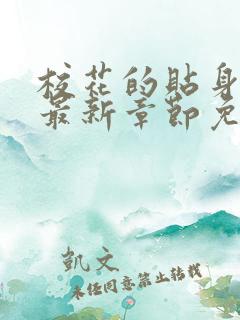 校花的贴身
最新章节免
凯文
未经同意禁止转载